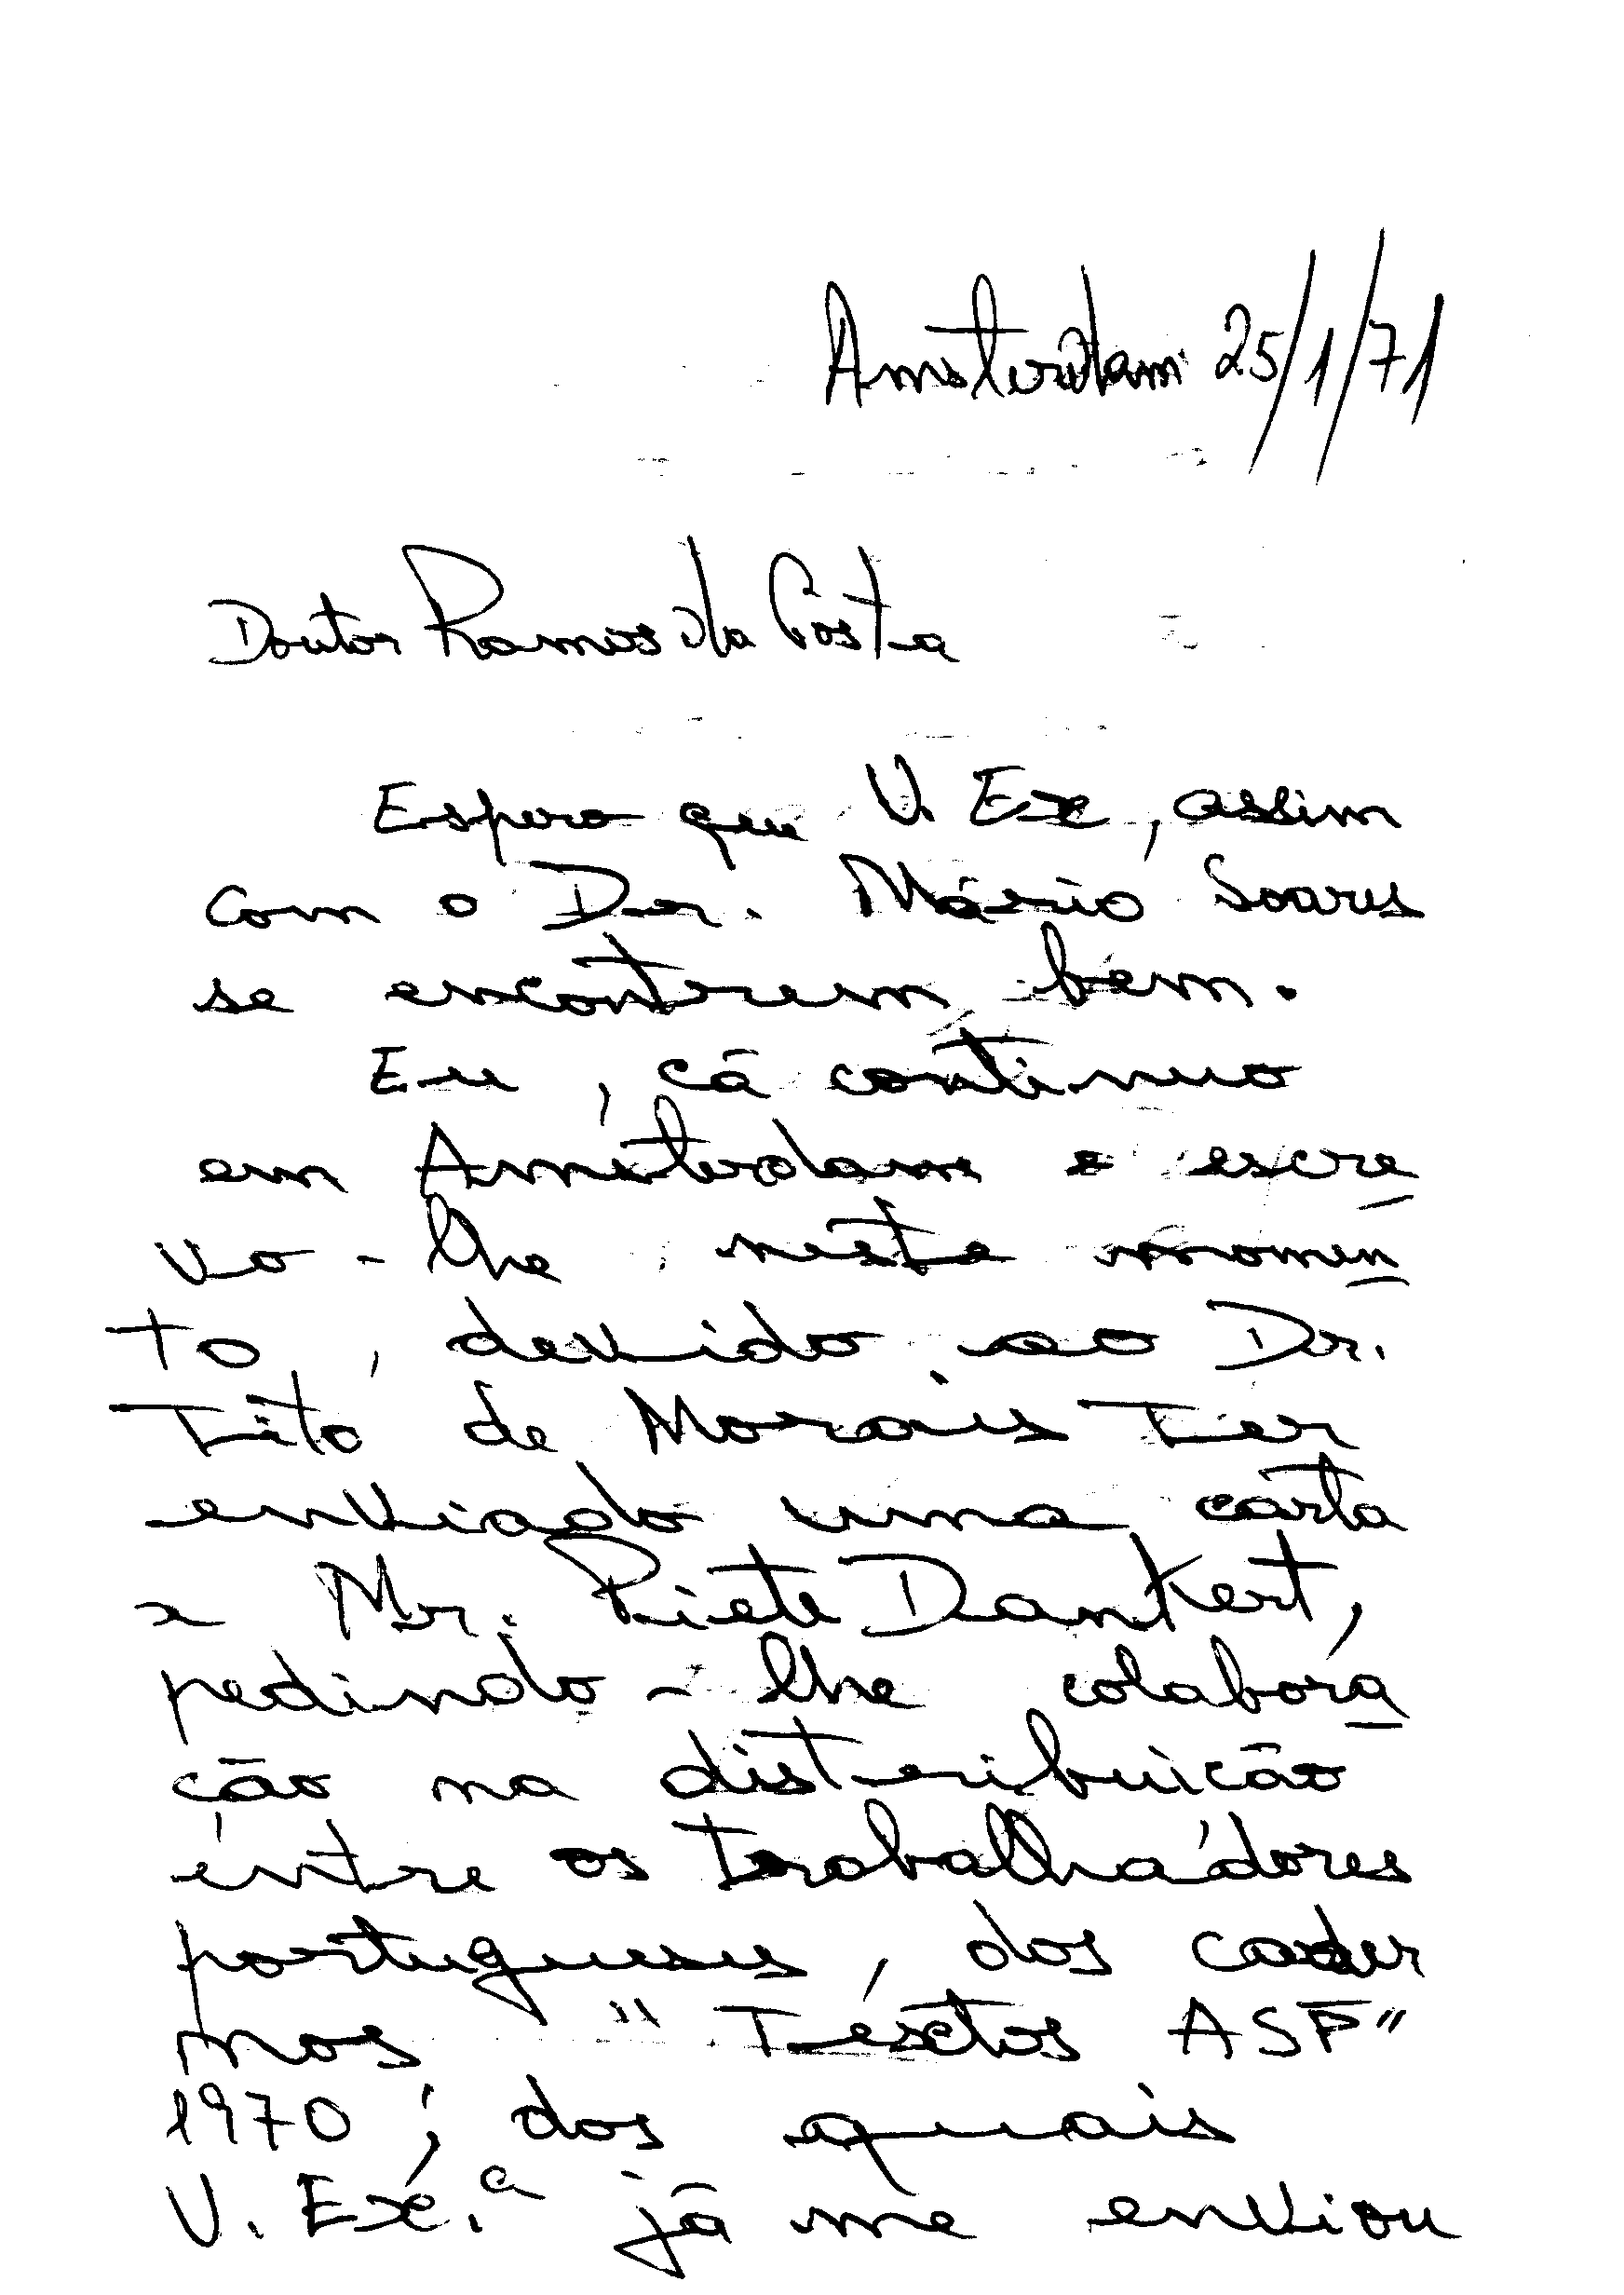 Amsterdam 25/1/71
Doutor Ramos da Costa
Espero que V. Exe, assim
com o Der. Mário Soares
se encontrem bem.
Eu, cá continuo
em Amesterdam e escre
vo-lhe neste momen
to, devido ao Dr.
Tito de Morais ter
enviado uma carta
a Mr. Piete Dankert,
pedindo-lhe colabora
ção na distribuição
entre os trabalhadores
portugueses, dos cader
nos "Tésctos ASP"
1970; dos quais
V. Exé.ª já me enviou